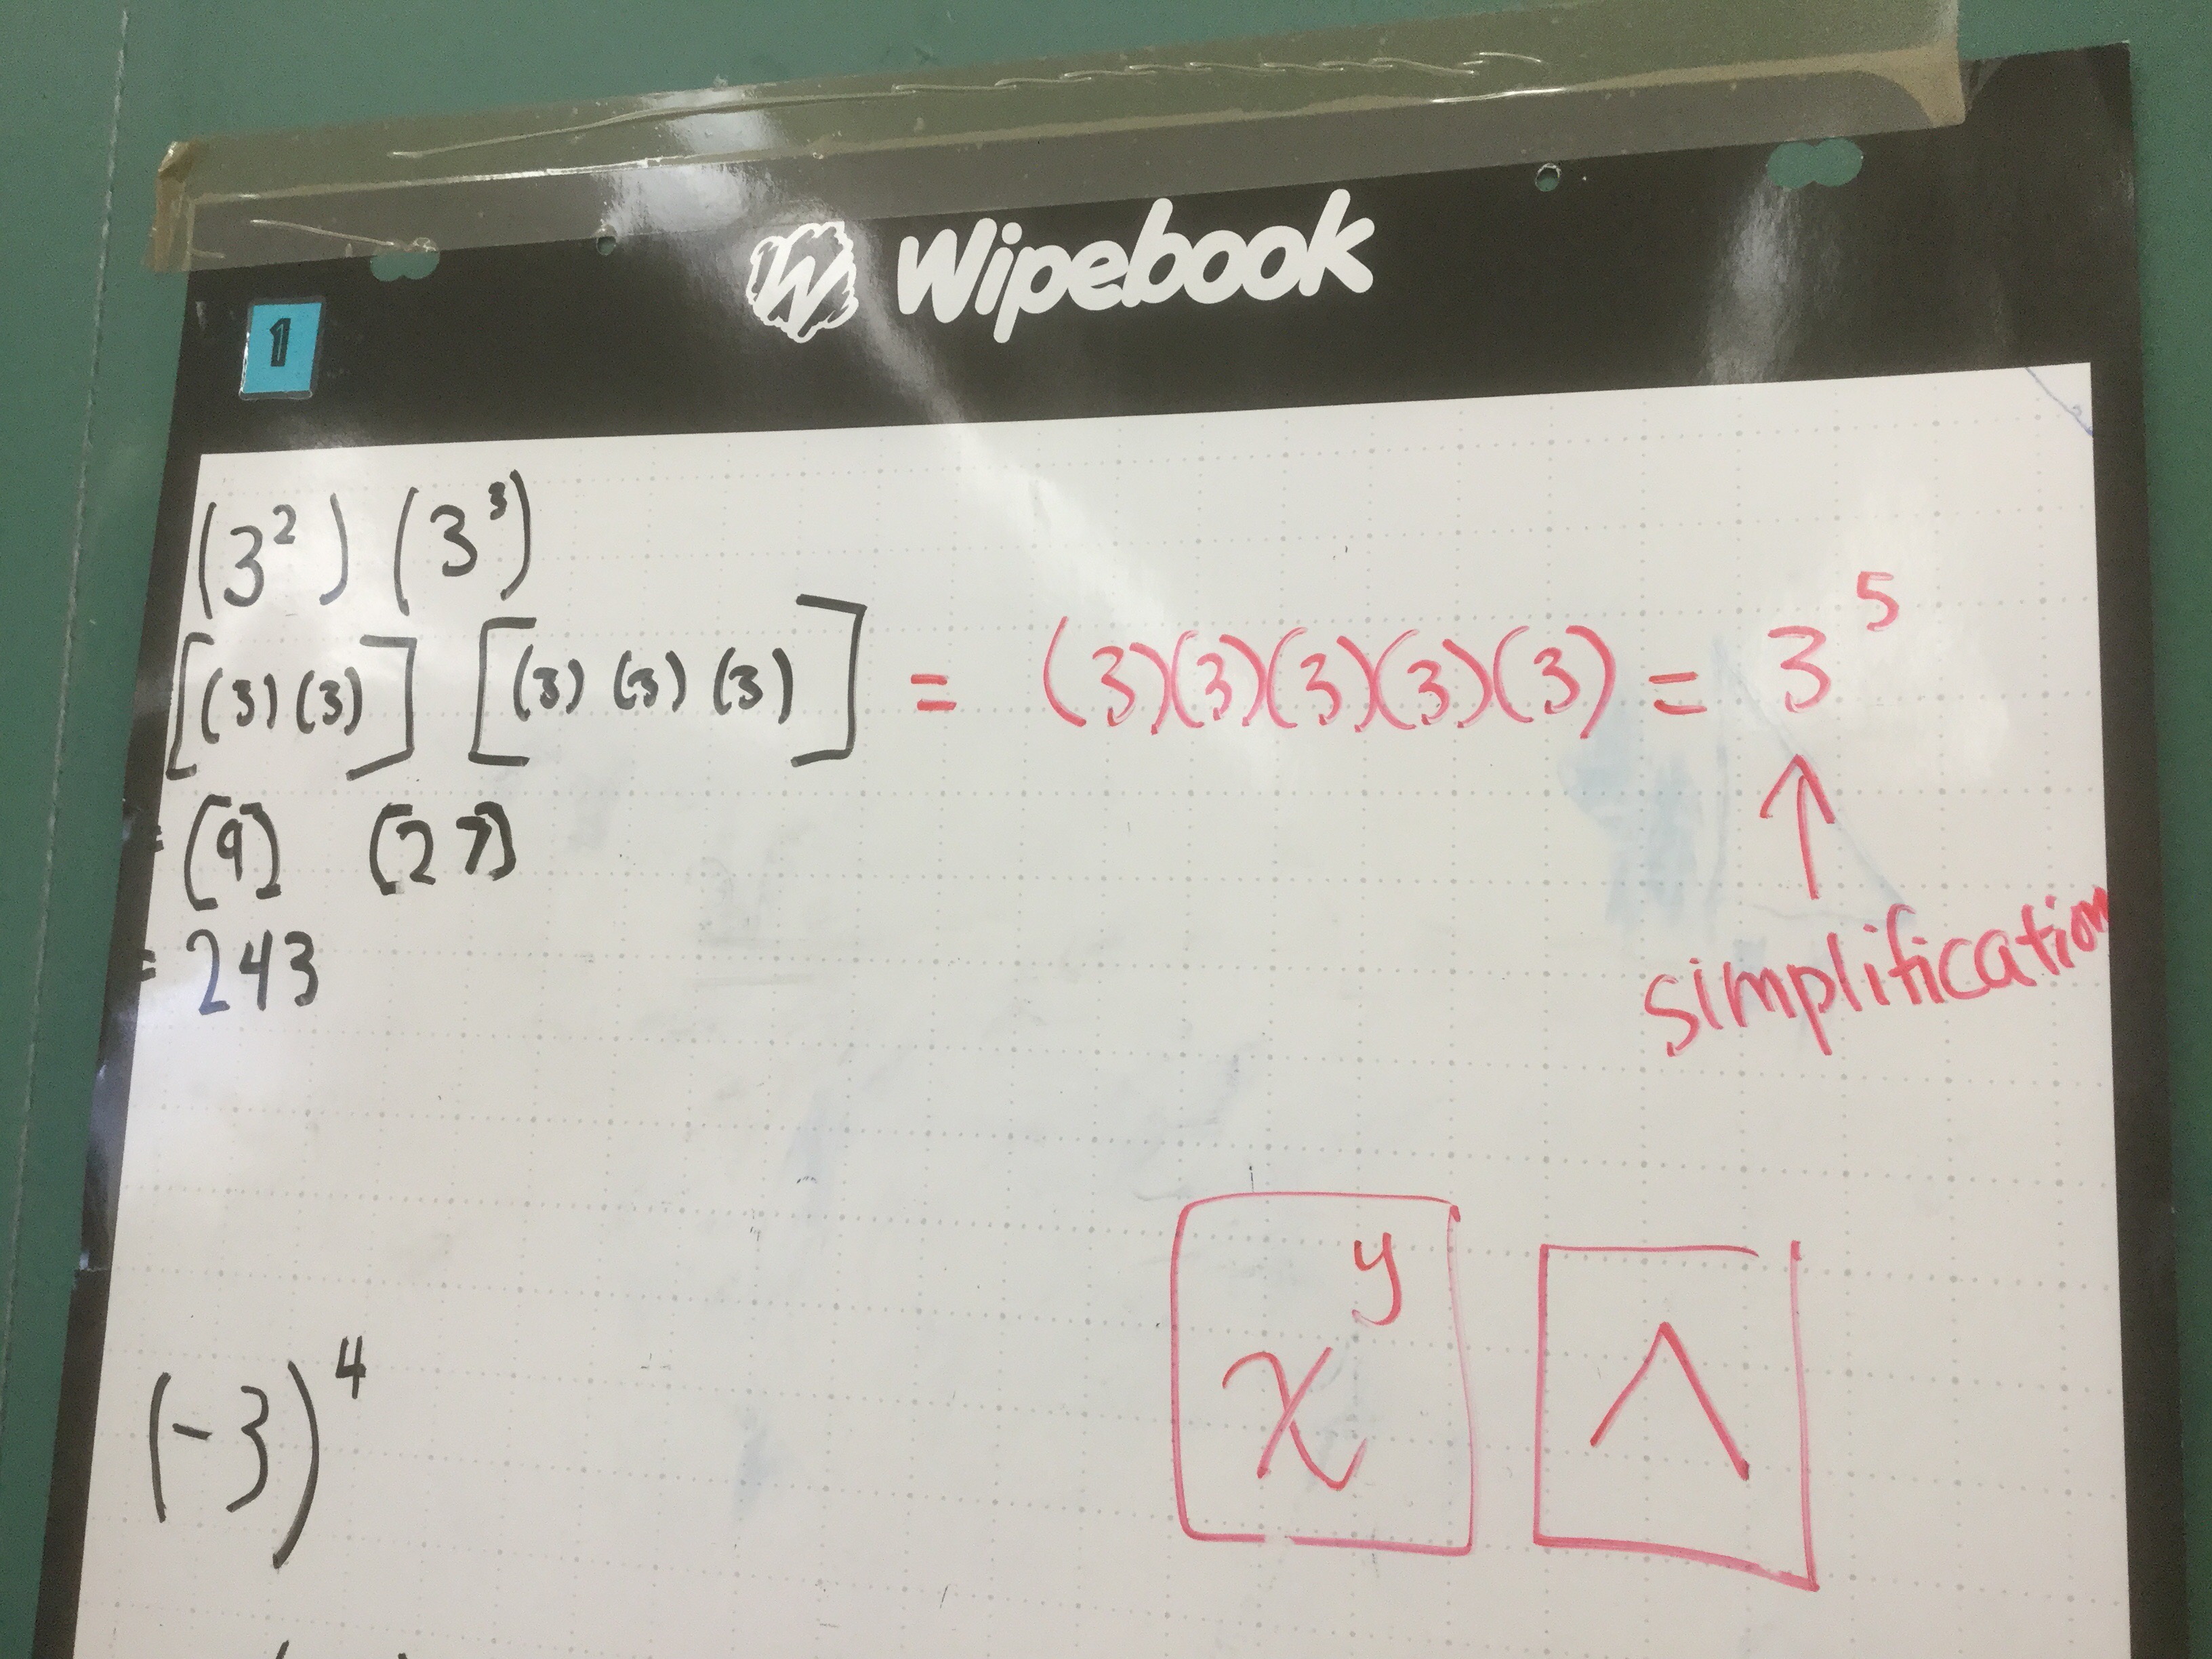 Wipebook
1
(3²) (3³)
[(3)(3)] [(3)(3)(3)] = (3)(3)(3)(3)(3) = 3⁵
= [9] [27]
= 243
↑
simplification
xʸ
^
(-3)⁴